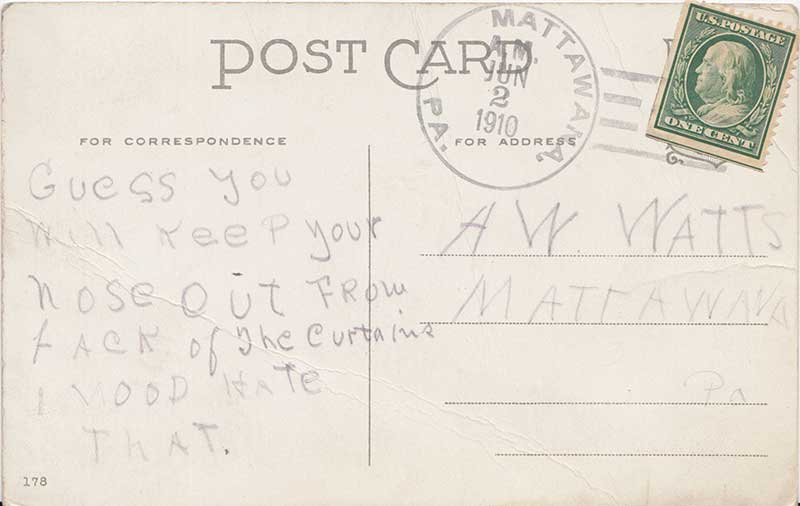 POST CARD
MATTAWANA,
PA.
A.M.
JUN
2
1910
U.S. POSTAGE
ONE CENT
FOR CORRESPONDENCE
FOR ADDRESS
Guess you
will keep your
nose out From
of The Curtains
I WOOD HATE
THAT.
A W. WATTS
MATTAWANA
Pa
178